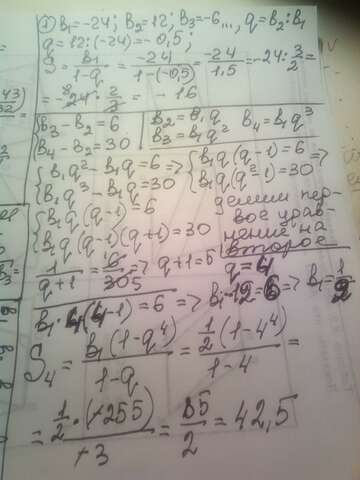 2) b₁=-24; b₂=12; b₃=-6..., q=b₂:b₁
q=12:(-24)=-0,5;
S = b₁/(1-q) = -24/(1-(-0,5)) = -24/1,5 = -24:3/2 =
= -24·2/3 = -16
b₃-b₂=6
b₄-b₂=30
b₂=b₁q
b₃=b₁q² b₄=b₁q³
{b₁q²-b₁q=6 =>
{b₁q³-b₁q=30
{b₁q(q-1)=6 =>
{b₁q(q²-1)=30
{b₁q(q-1)=6
{b₁q(q-1)(q+1)=30
делим пер-
вое урав-
нение на
второе
1/(q+1) = 6/30 5 => q+1=5
q=4
b₁·4(4-1)=6 => b₁·12=6 => b₁=1/2
S₄ = b₁(1-q⁴)/(1-q) = 1/2(1-4⁴)/(1-4) =
= 1/2·(+255)/+3 = 85/2 = 42,5